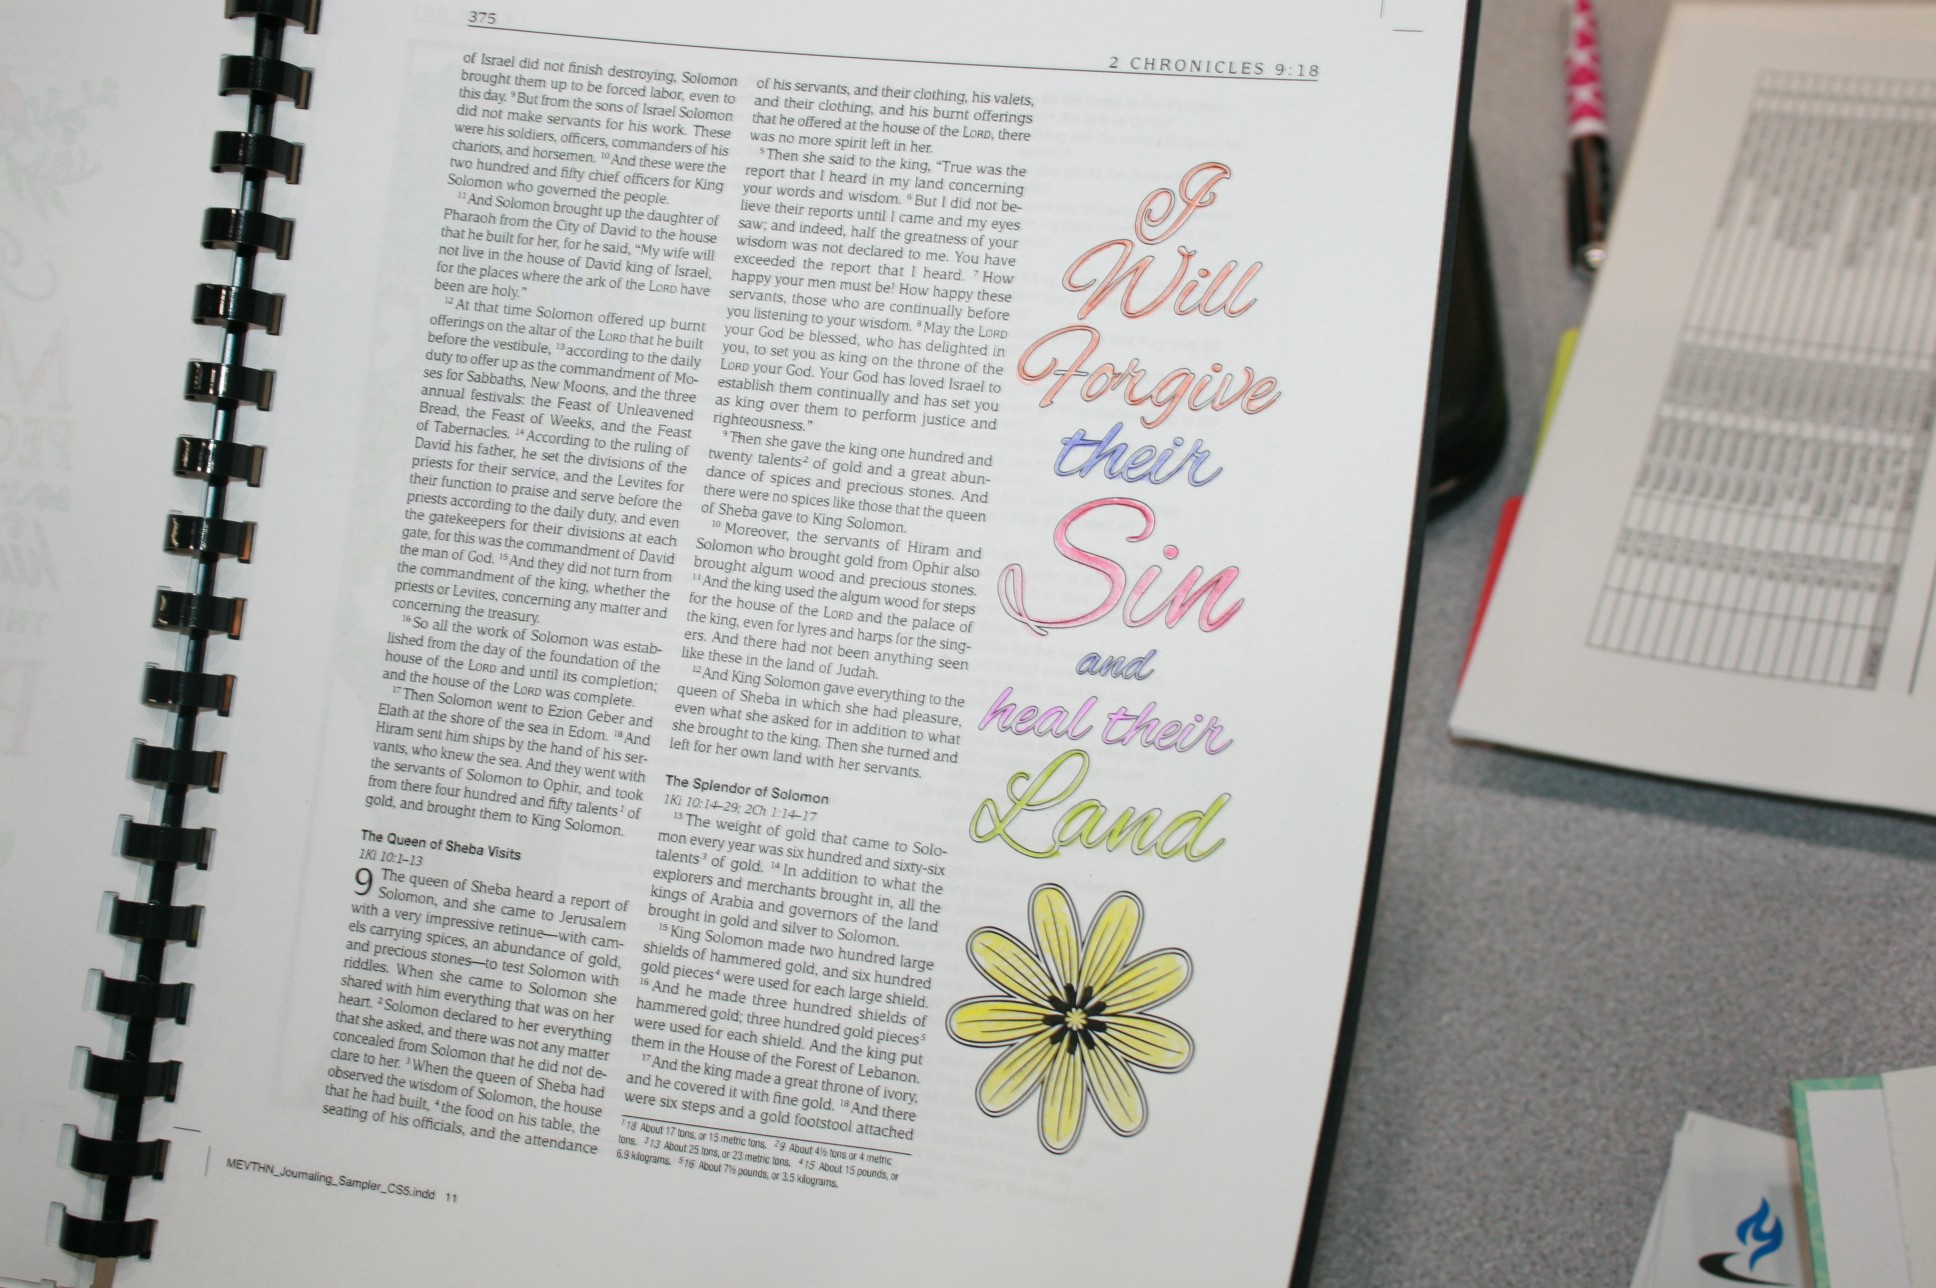 375
2 CHRONICLES 9:18
of Israel did not finish destroying, Solomon
brought them up to be forced labor, even to
this day. 9 But from the sons of Israel Solomon
did not make servants for his work. These
were his soldiers, officers, commanders of his
chariots, and horsemen. 10 And these were the
two hundred and fifty chief officers for King
Solomon who governed the people.
11 And Solomon brought up the daughter of
Pharaoh from the City of David to the house
that he built for her, for he said, “My wife will
not live in the house of David king of Israel,
for the places where the ark of the LORD have
been are holy.”
12 At that time Solomon offered up burnt
offerings on the altar of the LORD that he built
before the vestibule, 13 according to the daily
duty to offer up as the commandment of Mo-
ses for Sabbaths, New Moons, and the three
annual festivals: the Feast of Unleavened
Bread, the Feast of Weeks, and the Feast
of Tabernacles. 14 According to the ruling of
David his father, he set the divisions of the
priests for their service, and the Levites for
their function to praise and serve before the
priests according to the daily duty, and even
the gatekeepers for their divisions at each
gate, for this was the commandment of David
the man of God. 15 And they did not turn from
the commandment of the king, whether the
priests or Levites, concerning any matter and
concerning the treasury.
16 So all the work of Solomon was estab-
lished from the day of the foundation of the
house of the LORD and until its completion;
and the house of the LORD was complete.
17 Then Solomon went to Ezion Geber and
Elath at the shore of the sea in Edom. 18 And
Hiram sent him ships by the hand of his ser-
vants, who knew the sea. And they went with
the servants of Solomon to Ophir, and took
from there four hundred and fifty talents 1 of
gold, and brought them to King Solomon.
The Queen of Sheba Visits
1Ki 10:1–13
9 The queen of Sheba heard a report of
Solomon, and she came to Jerusalem
with a very impressive retinue—with cam-
els carrying spices, an abundance of gold,
and precious stones—to test Solomon with
riddles. When she came to Solomon she
shared with him everything that was on her
heart. 2 Solomon declared to her everything
that she asked, and there was not any matter
concealed from Solomon that he did not de-
clare to her. 3 When the queen of Sheba had
observed the wisdom of Solomon, the house
that he had built, 4 the food on his table, the
seating of his officials, and the attendance
of his servants, and their clothing, his valets,
and their clothing, and his burnt offerings
that he offered at the house of the LORD, there
was no more spirit left in her.
5 Then she said to the king, “True was the
report that I heard in my land concerning
your words and wisdom. 6 But I did not be-
lieve their reports until I came and my eyes
saw; and indeed, half the greatness of your
wisdom was not declared to me. You have
exceeded the report that I heard. 7 How
happy your men must be! How happy these
servants, those who are continually before
you listening to your wisdom. 8 May the LORD
your God be blessed, who has delighted in
you, to set you as king on the throne of the
LORD your God. Your God has loved Israel to
establish them continually and has set you
as king over them to perform justice and
righteousness.”
9 Then she gave the king one hundred and
twenty talents 2 of gold and a great abun-
dance of spices and precious stones. And
there were no spices like those that the queen
of Sheba gave to King Solomon.
10 Moreover, the servants of Hiram and
Solomon who brought gold from Ophir also
brought algum wood and precious stones.
11 And the king used the algum wood for steps
for the house of the LORD and the palace of
the king, even for lyres and harps for the sing-
ers. And there had not been anything seen
like these in the land of Judah.
12 And King Solomon gave everything to the
queen of Sheba in which she had pleasure,
even what she asked for in addition to what
she brought to the king. Then she turned and
left for her own land with her servants.
The Splendor of Solomon
1Ki 10:14–29; 2Ch 1:14–17
13 The weight of gold that came to Solo-
mon every year was six hundred and sixty-six
talents 3 of gold. 14 In addition to what the
explorers and merchants brought in, all the
kings of Arabia and governors of the land
brought in gold and silver to Solomon.
15 King Solomon made two hundred large
shields of hammered gold, and six hundred
gold pieces 4 were used for each large shield.
16 And he made three hundred shields of
hammered gold; three hundred gold pieces 5
were used for each shield. And the king put
them in the House of the Forest of Lebanon.
17 And the king made a great throne of ivory,
and he covered it with fine gold. 18 And there
were six steps and a gold footstool attached
1 18 About 17 tons, or 15 metric tons. 2 9 About 4½ tons or 4 metric
tons. 3 13 About 25 tons, or 23 metric tons. 4 15 About 15 pounds, or
6.9 kilograms. 5 16 About 7½ pounds, or 3.5 kilograms.
I
Will
Forgive
their
Sin
and
heal their
Land
MEVTHN_Journaling_Sampler_CS5.indd 11